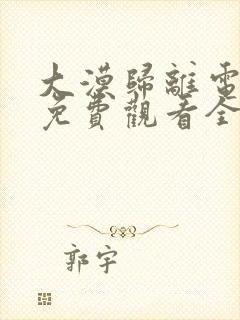 大漠歸離電
免費觀看全
郭宇